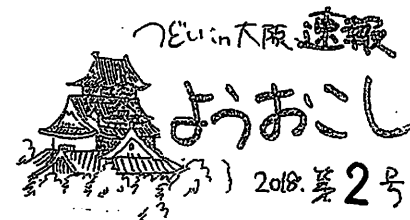 つどい in 大阪 速報
ようおこし
2018. 第2号